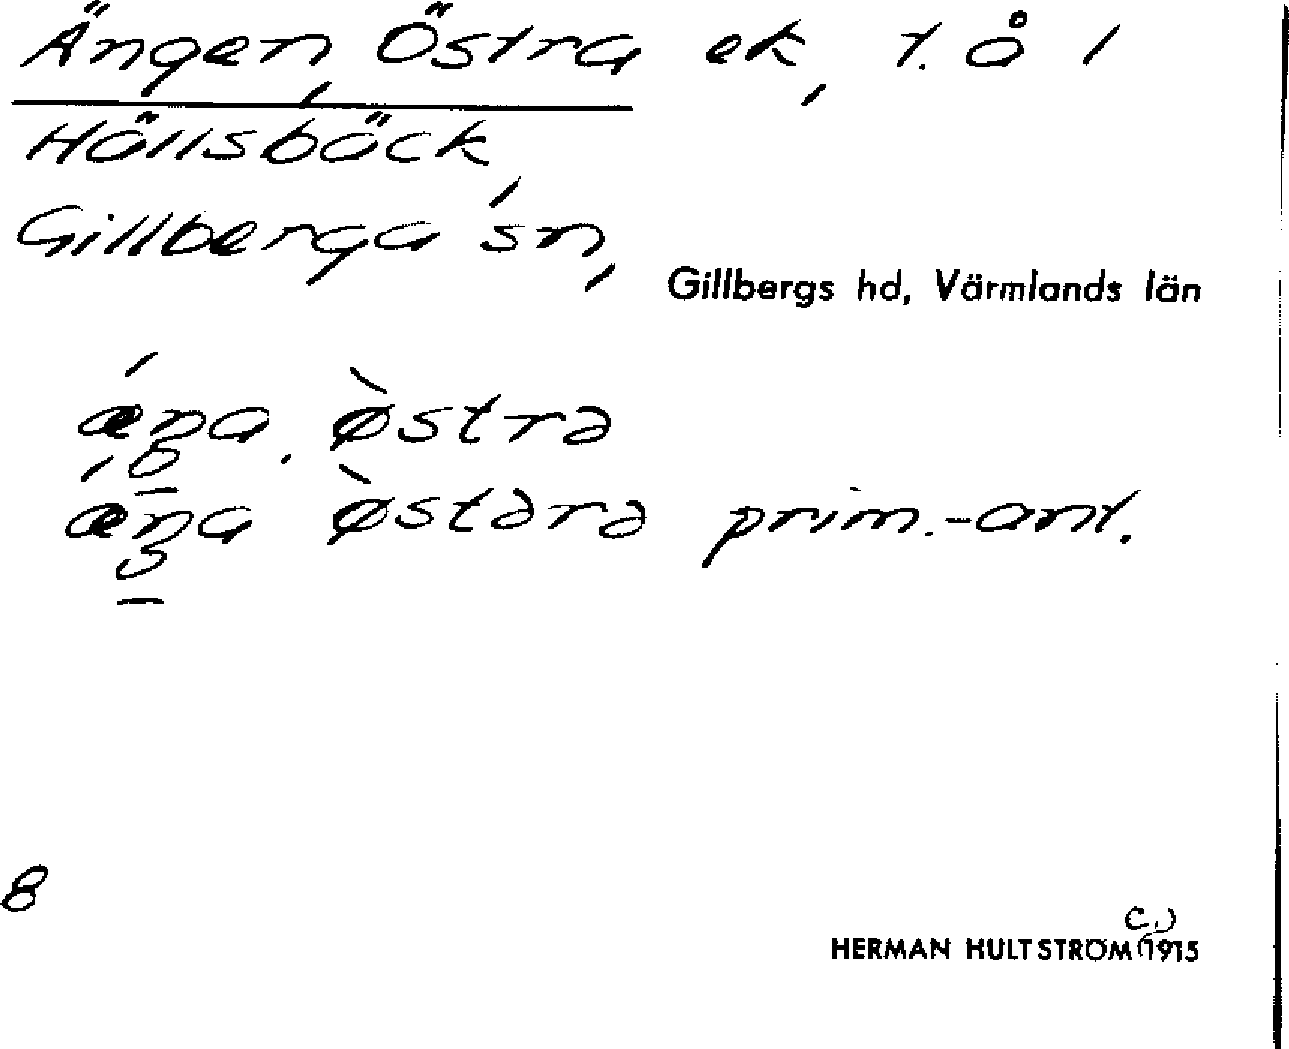 Ängen, Östra ek, t. å 1
Hällsbäck,
Gillberga sn,
Gillbergs hd, Värmlands län
östrə
östərə prim.-ant.
8
HERMAN HULTSTRÖM (c.) 1915